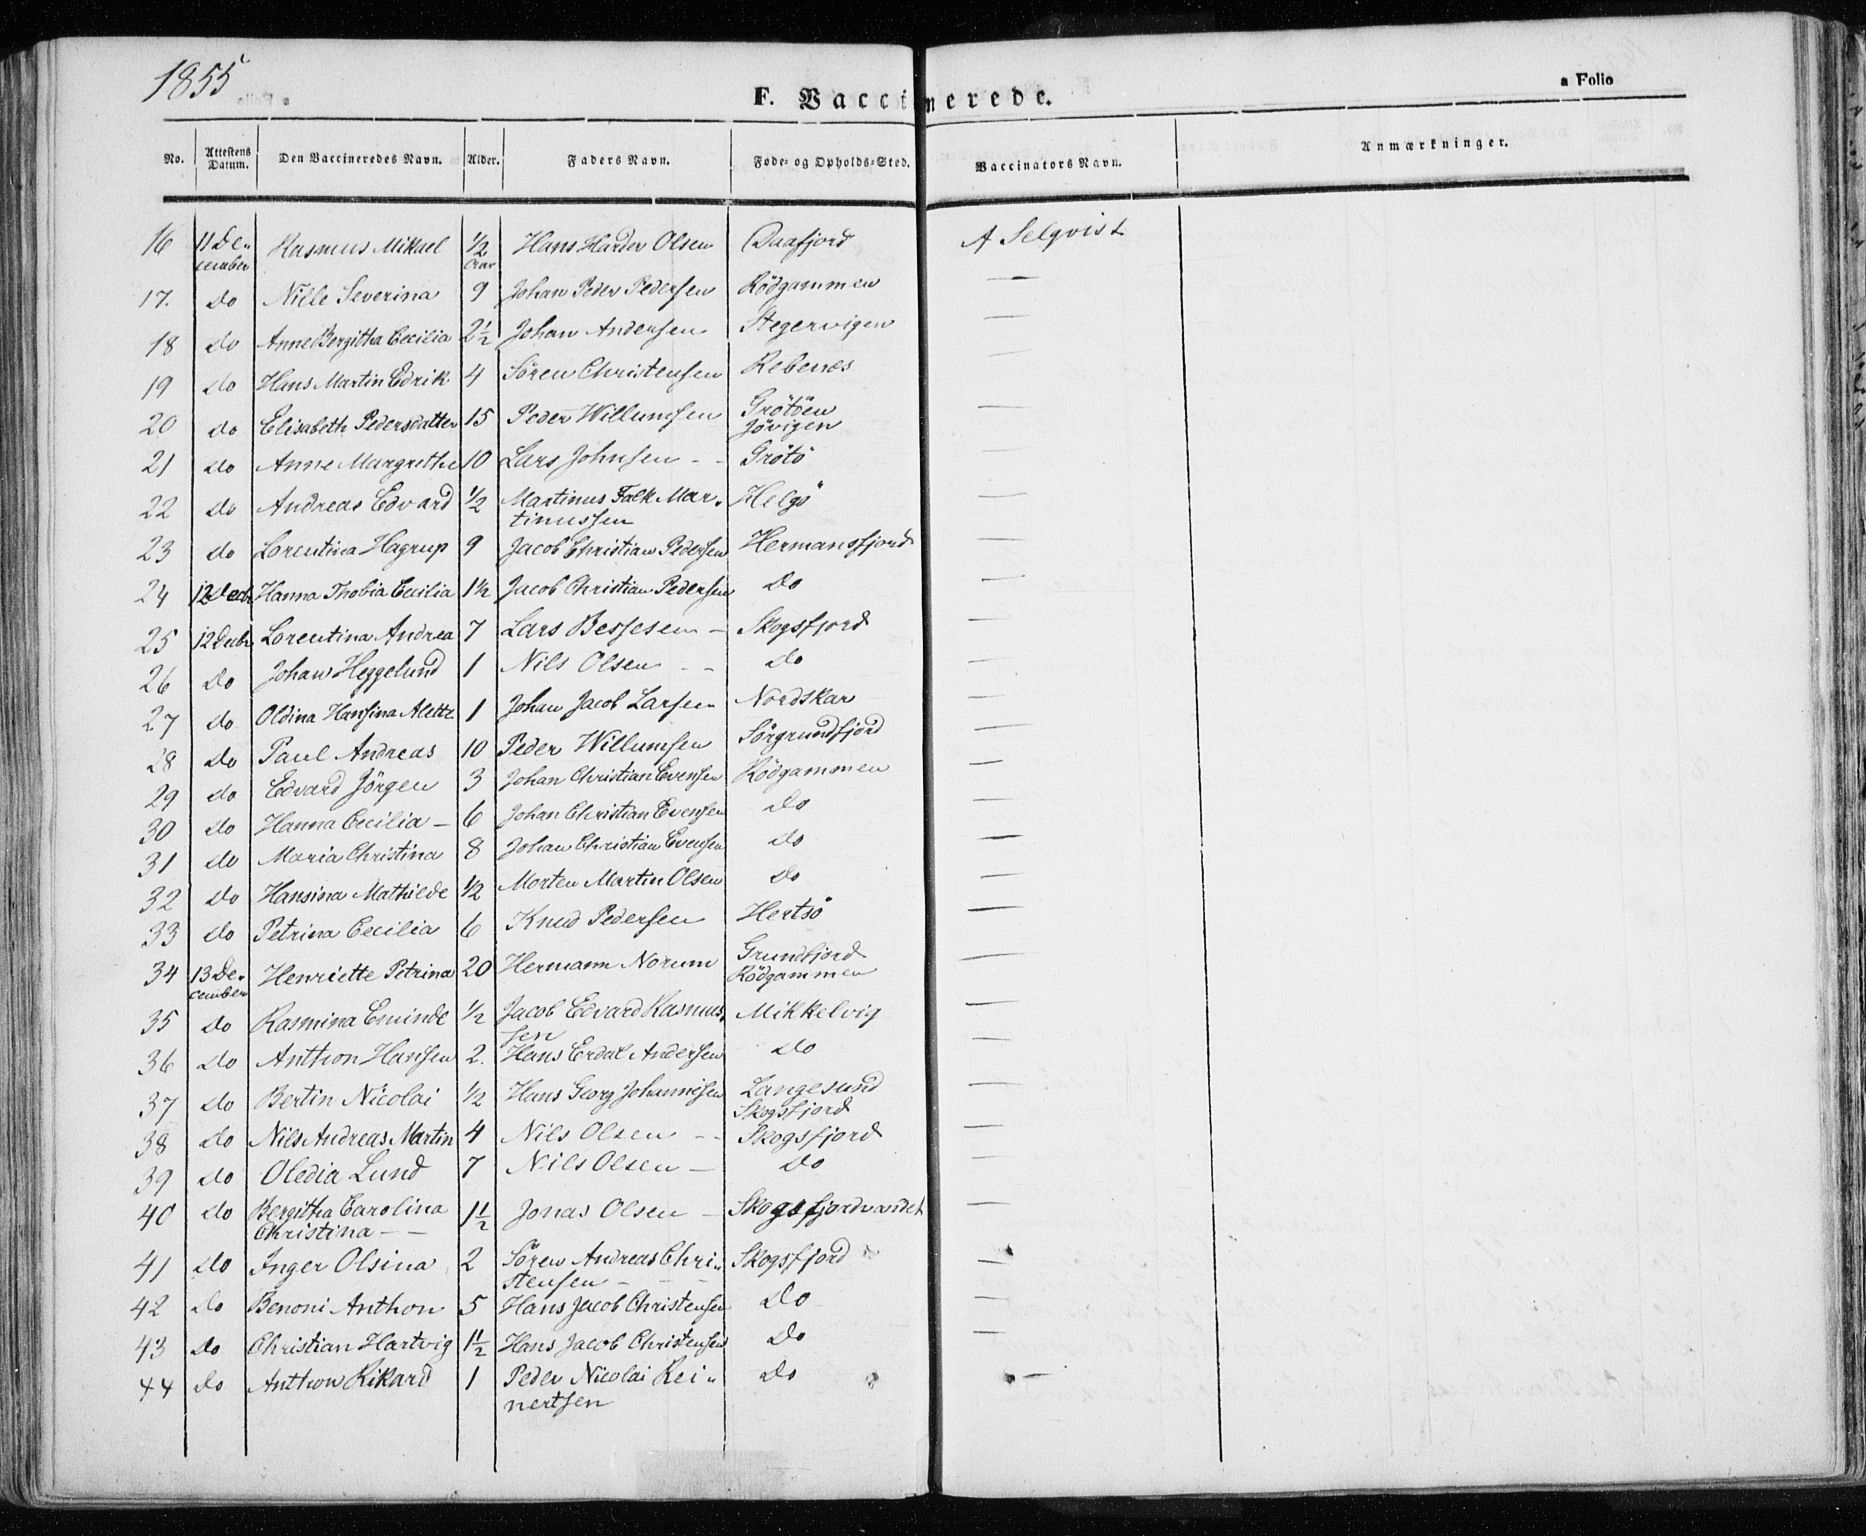 1855
F. Vaccinerede.
a Folio
No. Attestens Datum. Den Vaccineredes Navn. Alder. Faders Navn. Føde- og Opholds-Sted. Vaccinators Navn. Anmærkninger.
16 11 De- Rasmus Mikael 1/2 Hans Harder Olsen Daafjord A Selqvist
cember
17. do Nille Severina 9 Johan Peder Pedersen Rödgammen —
18 do Anne Bergitha Cecilia 2 1/2 Johan Andersen Stegervigen —
19 do Hans Martin Edrik 4 Sören Christensen Rebenæs —
20 do Elisabeth Pedersdatter 15 Peder Willumsen Grötöen —
Jövigen
21 do Anne Margrethe 10 Lars Johnsen - - Grötö —
22 do Andreas Edvard 1/2 Martinus Falk Mar- Helgö —
tinussen
23 do Lorentina Hagrup 9 Jacob Christian Pedersen Hermansfjord —
24 12 Decbr Hanna Thobia Cecilia 1 1/2 Jacob Christian Pedersen Do —
25 12 Decbr Lorentina Andrea 7 Lars Bessesen - Skogsfjord —
26 do Johan Heggelund 1 Nils Olsen - - do —
27 do Oldina Hansina Alette 1 Johan Jacob Larsen Nordskar —
28 do Paul Andreas 10 Peder Willumsen Sörgrundfjord —
29 do Edvard Jörgen 3 Johan Christian Evensen Rödgammen —
30 do Hanna Cecilia - 6 Johan Christian Evensen do —
31 do Maria Christina 8 Johan Christian Evensen do —
32 do Hansina Mathilde 1/2 Morten Martin Olsen do —
33 do Petrina Cecilia 6 Knud Pedersen Hertsö —
34 13 De- Henriette Petrina 20 Hermann Norum Grundfjord —
cember Rödgammen
35 do Rasmina Eminde 1/2 Jacob Edvard Rasmus- Mikkelvig —
sen
36 do Anthon Hansen 2. Hans Erdal Andersen do —
37 do Bertin Nicolai 1/2 Hans Georg Johannesen Langesund —
Skogsfjord
38 do Nils Andreas Martin 4 Nils Olsen - - Skogsfjord —
39 do Oledia Lund 7 Nils Olsen - Do —
40 do Bergitha Carolina 1 1/2 Jonas Olsen - Skogsfjordvandet —
Christina - -
41 do Inger Olsina 2 Sören Andreas Chri- Skogsfjord —
stensen - - -
42 do Benoni Anthon 5 Hans Jacob Christensen Do —
43 do Christian Hartvig 1 1/2 Hans Jacob Christensen Do —
44 do Anthon Rikard 1 Peder Nicolai Rei- Do —
nertsen